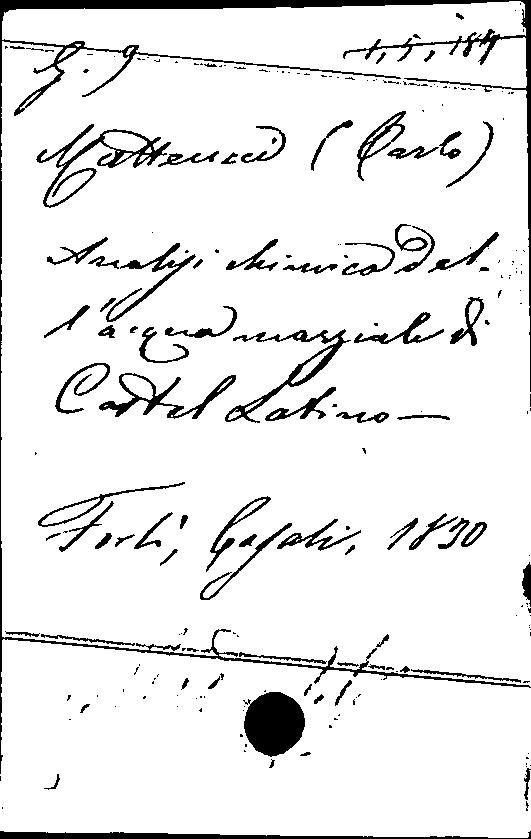 G. 9
1, 5, 184
Matteucci (Carlo)
Analisi chimica del-
l'acqua marziale di
Castel Latino —
Forlì, Casali, 1830